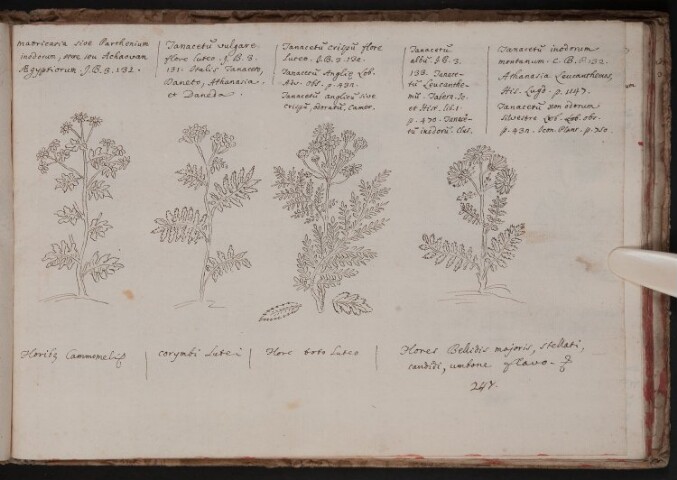 matricaria sive Parthenium
inodorum, flore seu Achaovan
Ægyptiorum J.B. 3. 132.
Tanacetū vulgare
flore luteo. J. B. 3.
131. Italis Tanaceto,
Daneto, Athanasia
et Daneda.
Tanacetū crispū flore
Luteo. J.B. 3. 132.
Tanacetū Anglic Lob.
Adv. obs. p. 431.
Tanacetū anglicū sive
crispū, odoratū, Camer.
Tanacetū
albū. J.B. 3.
133. Tanace-
tū Leucanthe-
et Hist. lib. 1.
p. 470. Tanace-
tū inodorū Clus.
Tanacetū inodorum
montanum. C. B. P. 132.
Athanasia Leucanthemos,
His. Lugd. p. 1147.
Tanacetū non odorum
silvestre Lob. obs.
p. 431. Icon. Plant. p. 750.
Floribus Cammemeli
corymbi Lutei
Flore toto Luteo
Flores Bellidis majoris, stellati,
candidi, umbone flavo.
247.